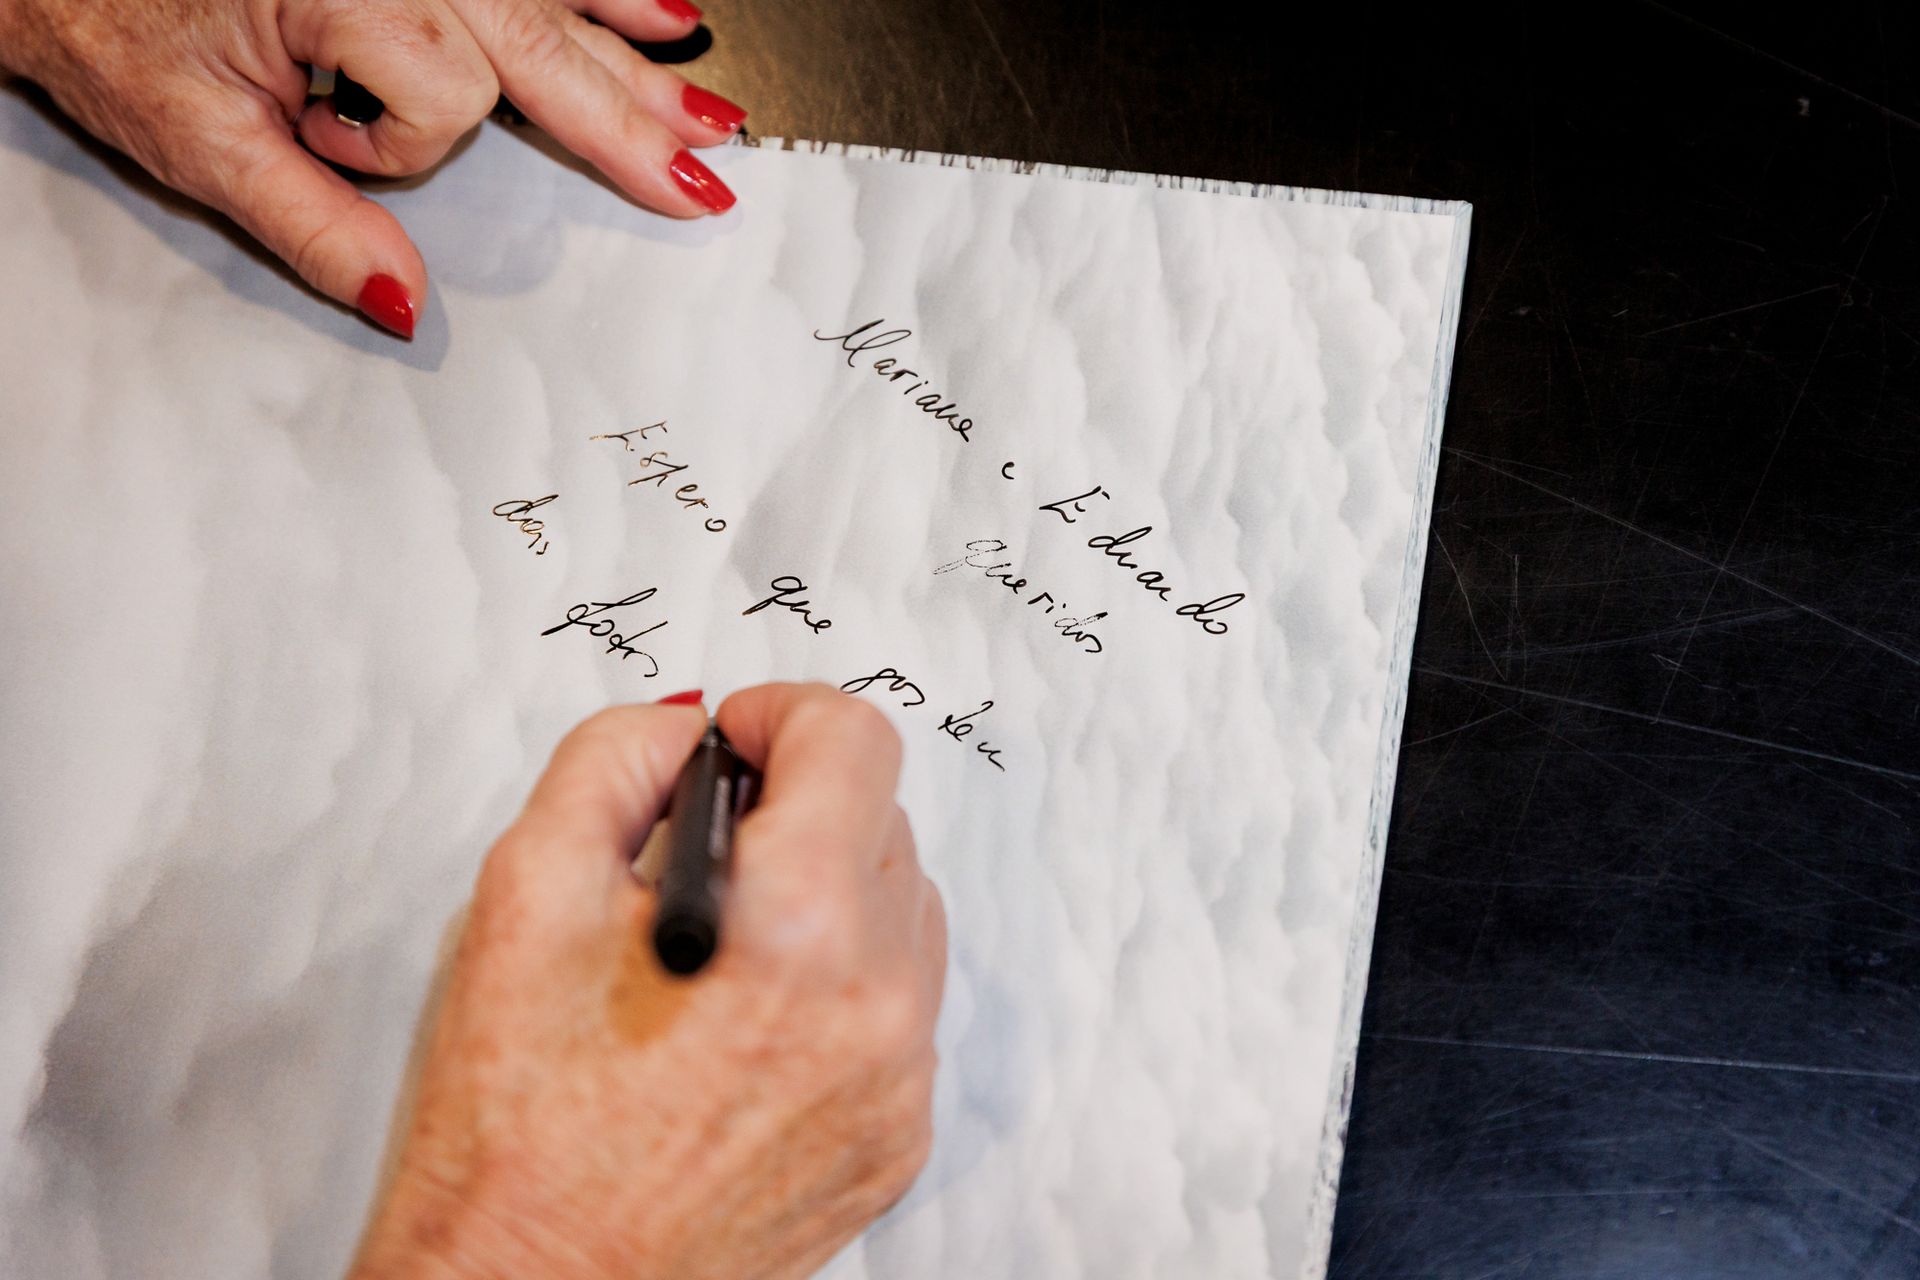 Mariane e Eduardo
queridos
Espero que gostem
das fotos